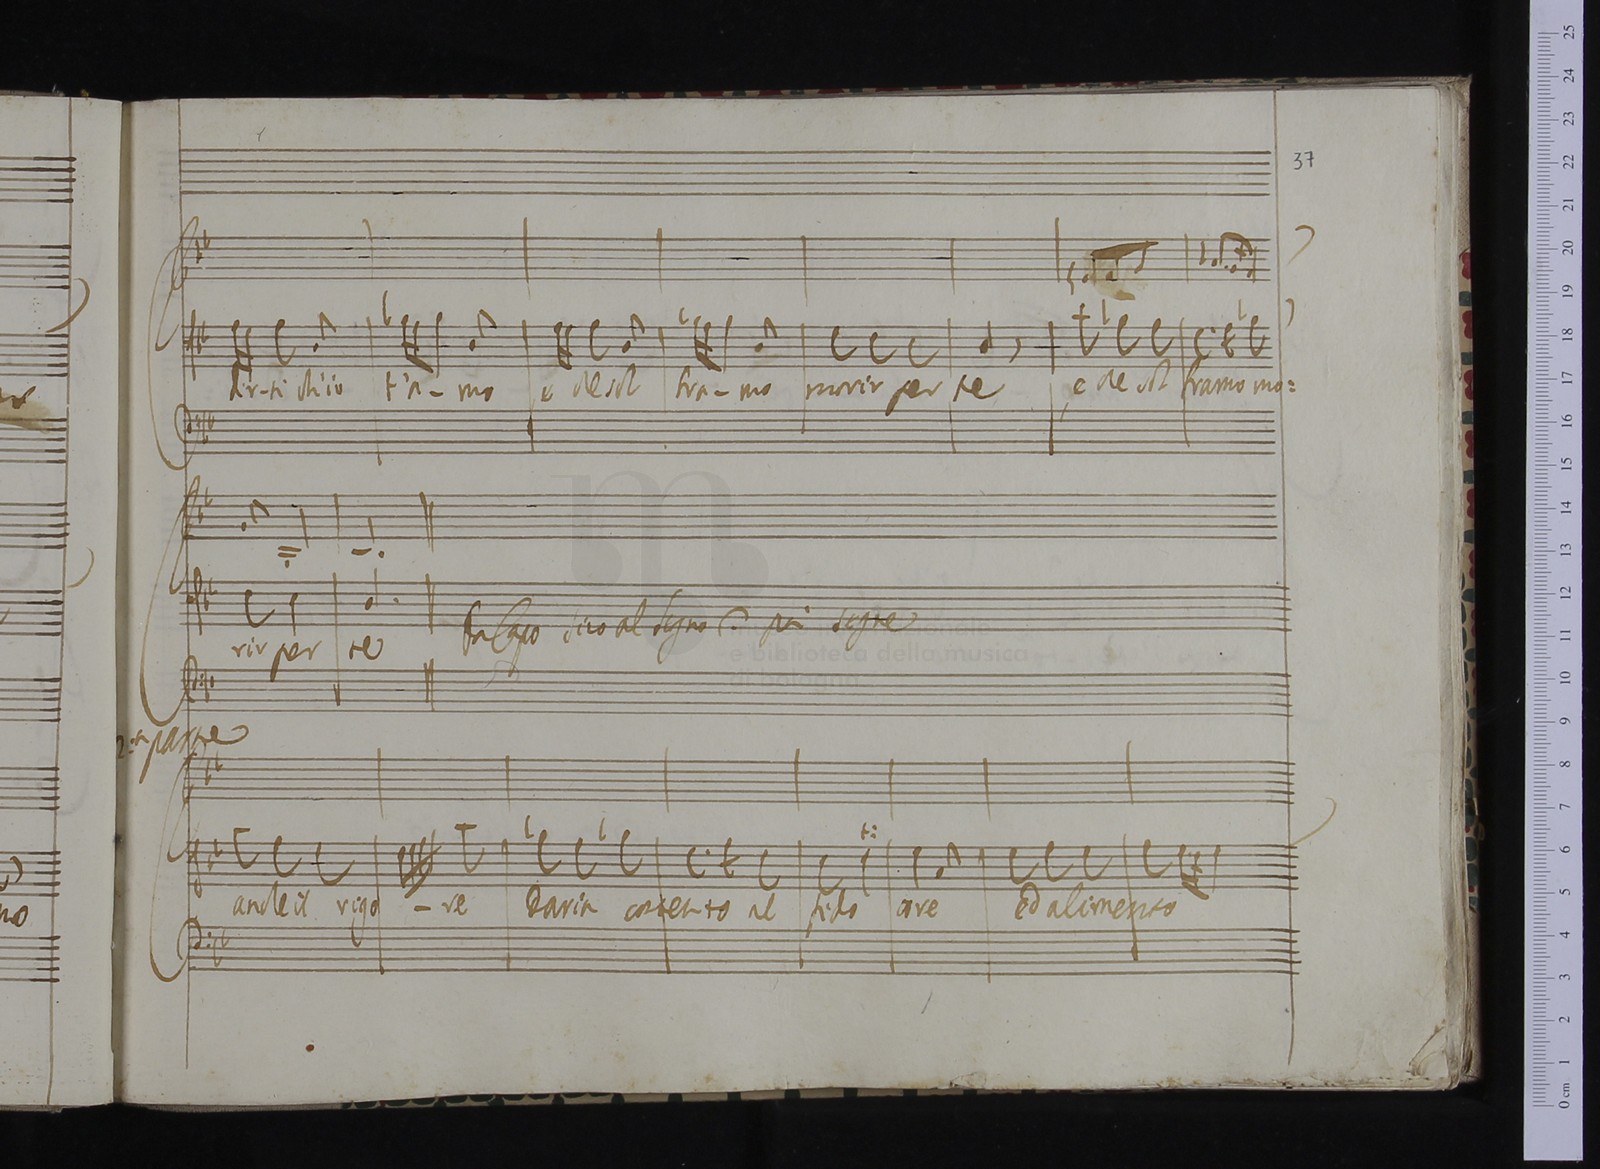 37
dir-ti ch'io t'a - mo e desol bra - mo morir per te e de sol bramo mo=
rir per te Da Capo sino al Segno poi segue
e biblioteca della musica
di bologna
2.da parte
and'il rigo - re Daria contento al fido core ed alimento
no
25
24
23
22
21
20
19
18
17
16
15
14
13
12
11
10
9
8
7
6
5
4
3
2
1
0 cm